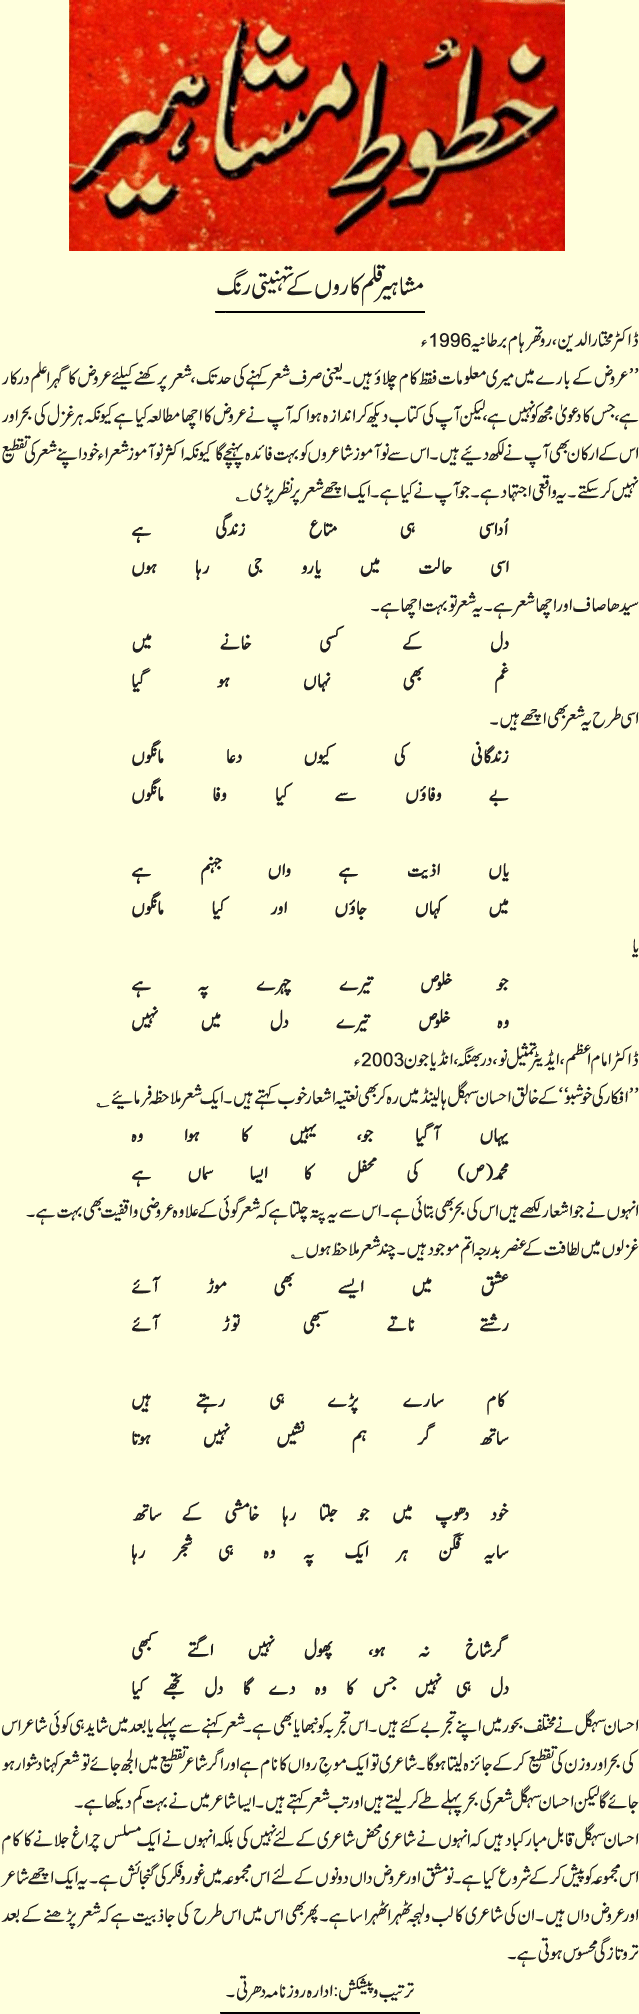 خطوطِ مشاہیر
مشاہیر قلم کاروں کے تہنیتی رنگ
ڈاکٹر مختار الدین، روتھر ہام برطانیہ 1996ء
’’عروض کے بارے میں میری معلومات فقط کام چلاؤ ہیں۔ یعنی صرف شعر کہنے کی حد تک، شعر پر کھنے کیلئے عروض کا گہرا علم درکار
ہے، جس کا دعویٰ مجھ کو نہیں ہے، لیکن آپ کی کتاب دیکھ کر اندازہ ہوا کہ آپ نے عروض کا اچھا مطالعہ کیا ہے کیونکہ ہر غزل کی بحر اور
اس کے ارکان بھی آپ نے لکھ دئیے ہیں۔ اس سے نو آموز شاعروں کو بہت فائدہ پہنچے گا کیونکہ اکثر نو آموز شعراء خود اپنے شعر کی تقطیع
نہیں کر سکتے۔ یہ واقعی اجتہاد ہے۔ جو آپ نے کیا ہے۔ ایک اچھے شعر پر نظر پڑی ؂
اُداسی ہی متاع زندگی ہے
اسی حالت میں یارو جی رہا ہوں
سیدھا صاف اور اچھا شعر ہے۔ یہ شعر تو بہت اچھا ہے۔
دل کے کسی خانے میں
غم بھی نہاں ہو گیا
اسی طرح یہ شعر بھی اچھے ہیں۔
زندگانی کی کیوں دعا مانگوں
بے وفاؤں سے کیا وفا مانگوں
یاں اذیت ہے واں جہنم ہے
میں کہاں جاؤں اور کیا مانگوں
یا
جو خلوص تیرے چہرے پہ ہے
وہ خلوص تیرے دل میں نہیں
ڈاکٹر امام اعظم، ایڈیٹر تمثیل نو، دربھنگہ، انڈیا جون 2003ء
’’افکار کی خوشبو‘‘ کے خالق احسان سہگل ہالینڈ میں رہ کر بھی نعتیہ اشعار خوب کہتے ہیں۔ ایک شعر ملاحظہ فرمائیے ؂
یہاں آ گیا جو، یہیں کا ہوا وہ
محمد(ص) کی محفل کا ایسا سماں ہے
انہوں نے جو اشعار لکھے ہیں اس کی بحر بھی بتائی ہے۔ اس سے یہ پتہ چلتا ہے کہ شعر گوئی کے علاوہ عروضی واقفیت بھی بہت ہے۔
غزلوں میں لطافت کے عنصر بدرجہ اتم موجود ہیں۔ چند شعر ملاحظ ہوں ؂
عشق میں ایسے بھی موڑ آئے
رشتے ناتے سبھی توڑ آئے
کام سارے پڑے ہی رہتے ہیں
ساتھ گر ہم نشیں نہیں ہوتا
خود دھوپ میں جو جلتا رہا خامشی کے ساتھ
سایہ فگن ہر ایک پہ وہ ہی شجر رہا
گر شاخ نہ ہو، پھول نہیں اگتے کبھی
دل ہی نہیں جس کا وہ دے گا دل تجھے کیا
احسان سہگل نے مختلف بحور میں اپنے تجربے کئے ہیں۔ اس تجربہ کو نبھایا بھی ہے۔ شعر کہنے سے پہلے یا بعد میں شاید ہی کوئی شاعر اس
کی بحر اور وزن کی تقطیع کر کے جائزہ لیتا ہوگا۔ شاعری تو ایک موج رواں کا نام ہے اور اگر شاعر تقطیع میں الجھ جائے تو شعر کہنا دشوار ہو
جائے گا لیکن احسان سہگل شعر کی بحر پہلے طے کر لیتے ہیں اور تب شعر کہتے ہیں۔ ایسا شاعر میں نے بہت کم دیکھا ہے۔
احسان سہگل قابل مبارکباد ہیں کہ انہوں نے شاعری محض شاعری کے لئے نہیں کی بلکہ انہوں نے ایک مسلسل چراغ جلانے کا کام
اس مجموعہ کو پیش کر کے شروع کیا ہے۔ نو مشق اور عروض داں دونوں کے لئے اس مجموعہ میں غور و فکر کی گنجائش ہے۔ یہ ایک اچھے شاعر
اور عروض داں ہیں۔ ان کی شاعری کا لب و لہجہ ٹھہرا ٹھہرا سا ہے۔ پھر بھی اس میں اس طرح کی جاذبیت ہے کہ شعر پڑھنے کے بعد
تر و تازگی محسوس ہوتی ہے۔
ترتیب و پیشکش: ادارہ روزنامہ دھرتی۔